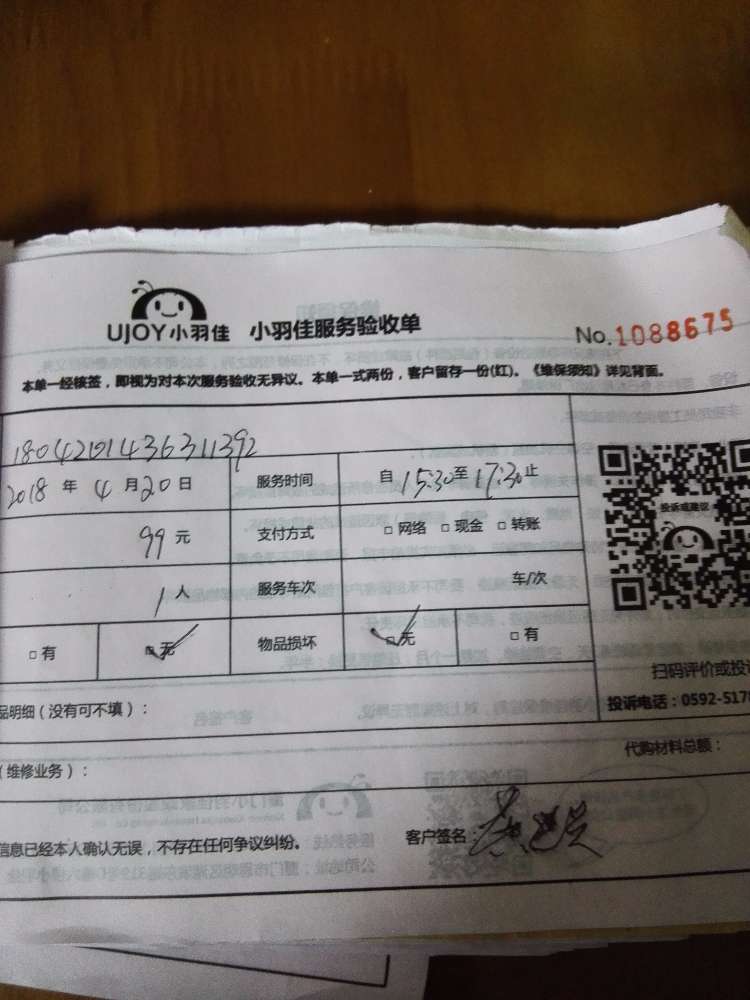 UJOY小羽佳 小羽佳服务验收单
No.1088675
本单一经核签，即视为对本次服务验收无异议。本单一式两份，客户留存一份(红)。《维保须知》详见背面。
1804201436311392
2018 年 4 月 20 日 服务时间 自 15:30 至 17:30 止
投诉或建议
99 元 支付方式 □ 网络 □ 现金 □ 转账
1 人 服务车次 车/次
□ 有 □ 无 物品损坏 □ 无 □ 有
扫码评价或投诉
品明细（没有可不填）：
投诉电话：0592-5178
代购材料总额：
（维修业务）：
信息已经本人确认无误，不存在任何争议纠纷。
客户签名：